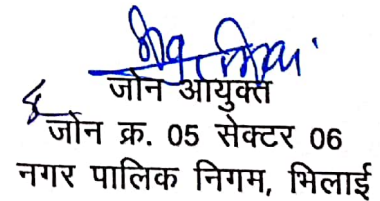 जोन आयुक्त
जोन क्र. 05 सेक्टर 06
नगर पालिक निगम, भिलाई